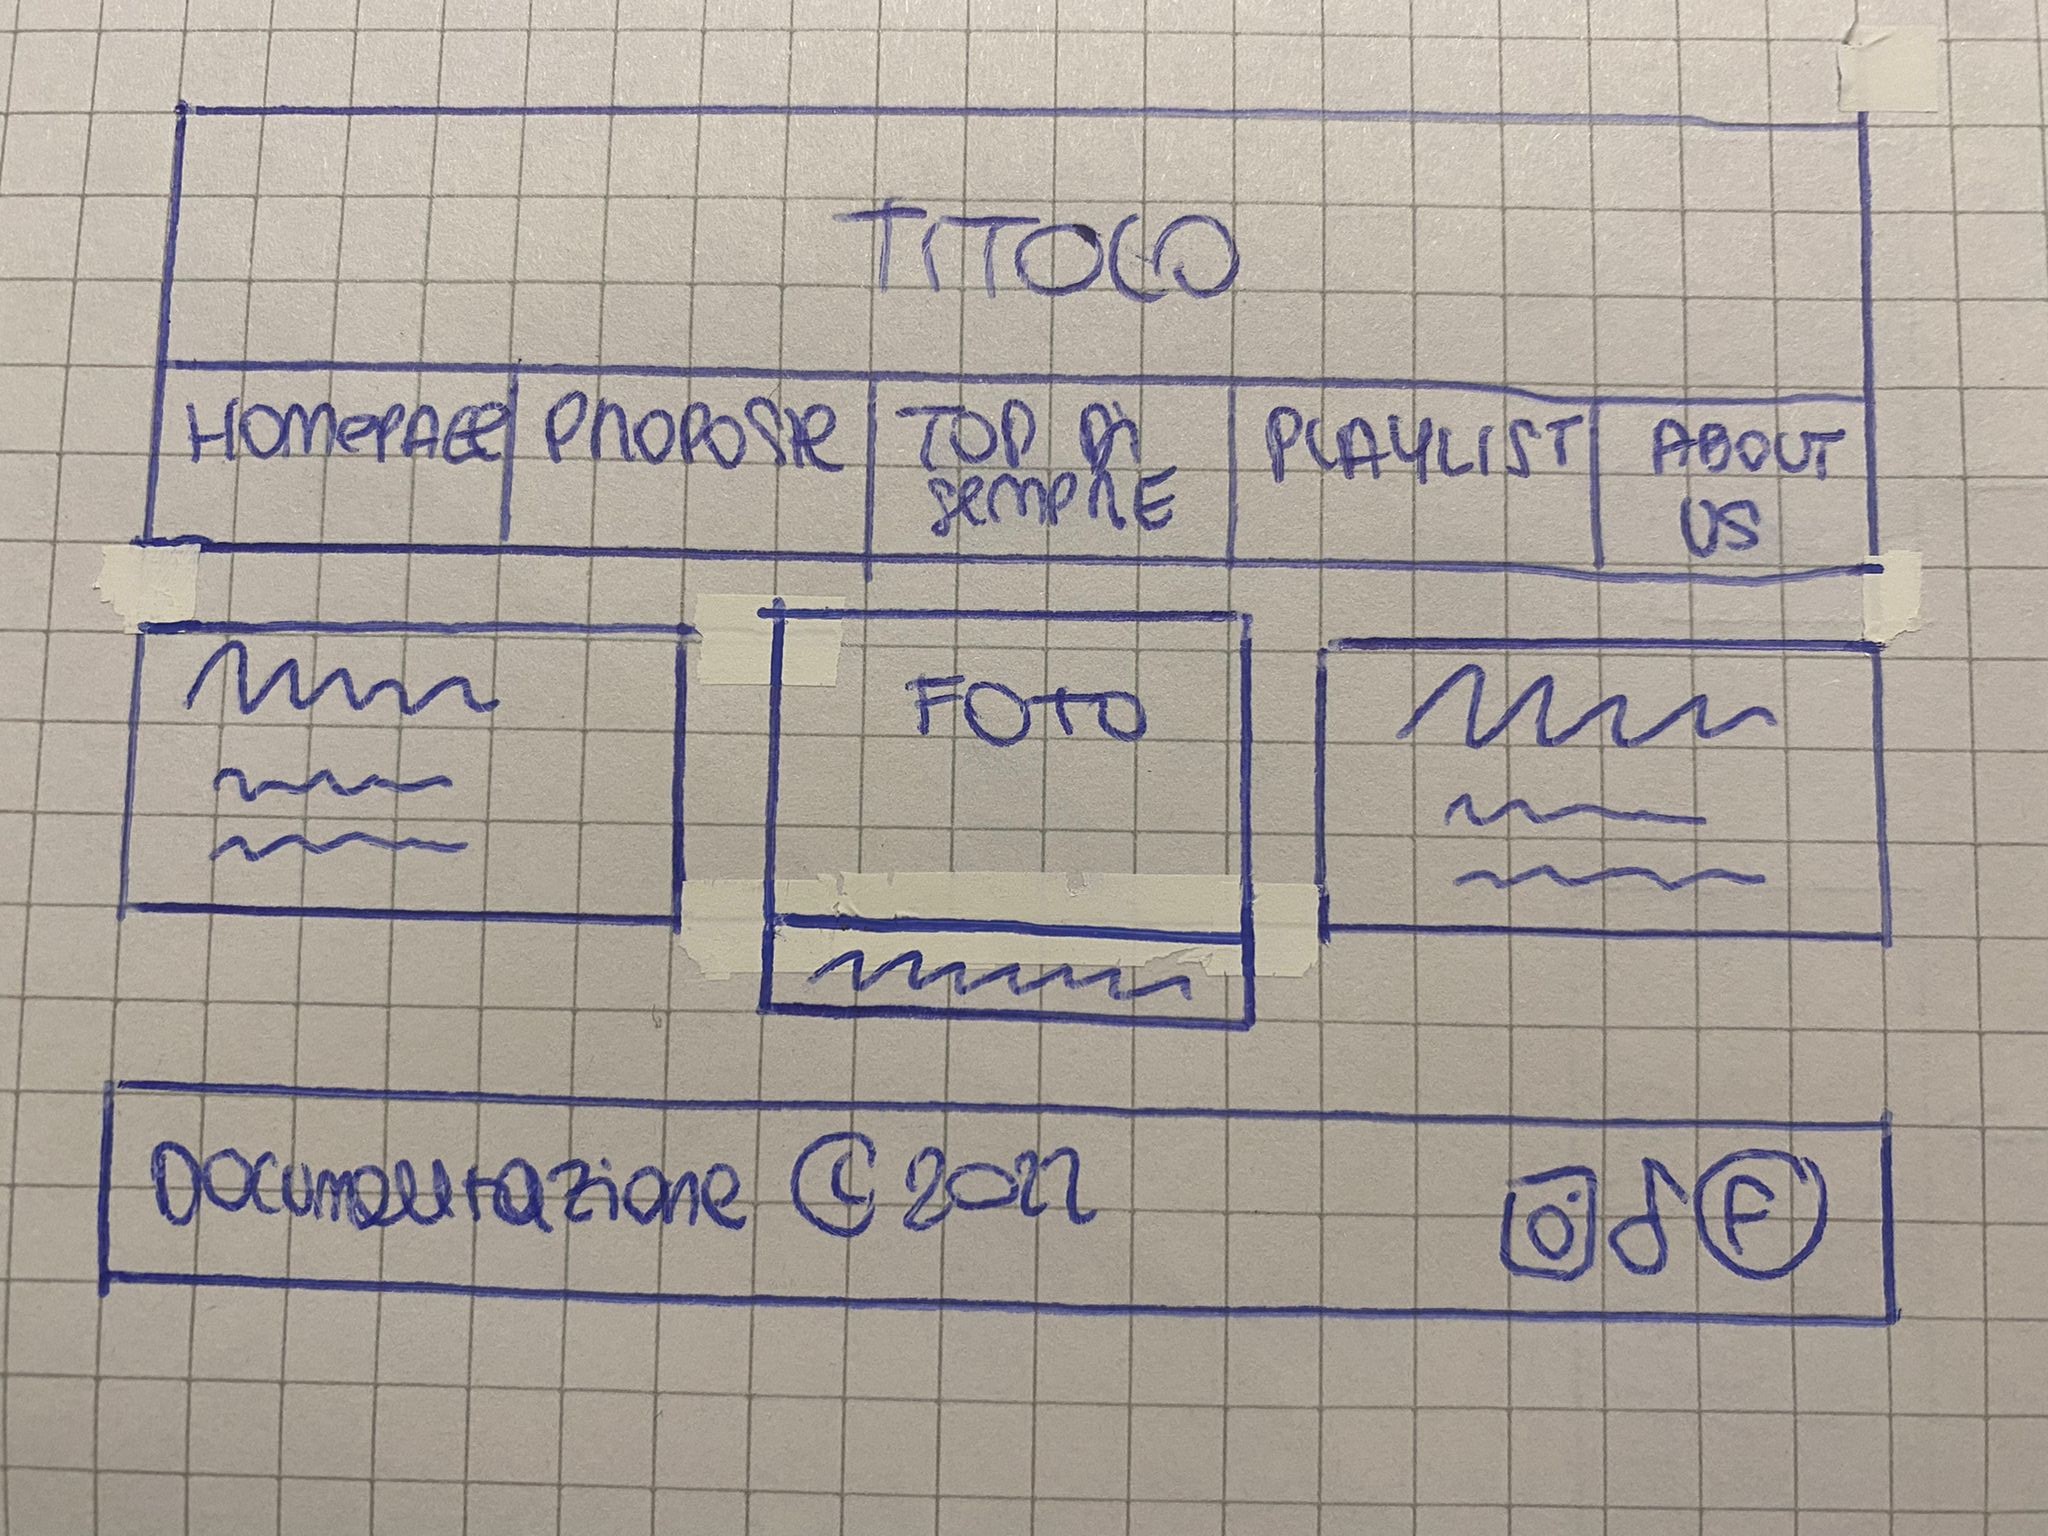 TITOLO
HOMEPAGE PROPOSTE TOP DI PLAYLIST ABOUT
SEMPRE US
FOTO
DOCUMENTAZIONE © 2022
F